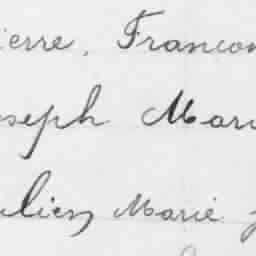 ierre, Francon
oseph Mari
ulien Marie J